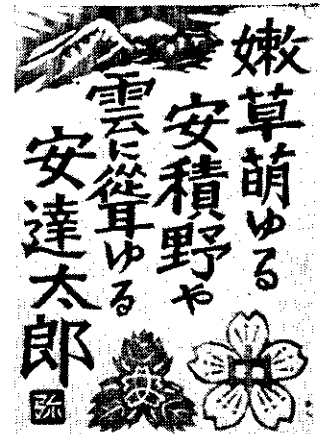 嫩草萌ゆる
安積野や
雲に聳ゆる
安達太郎
弥